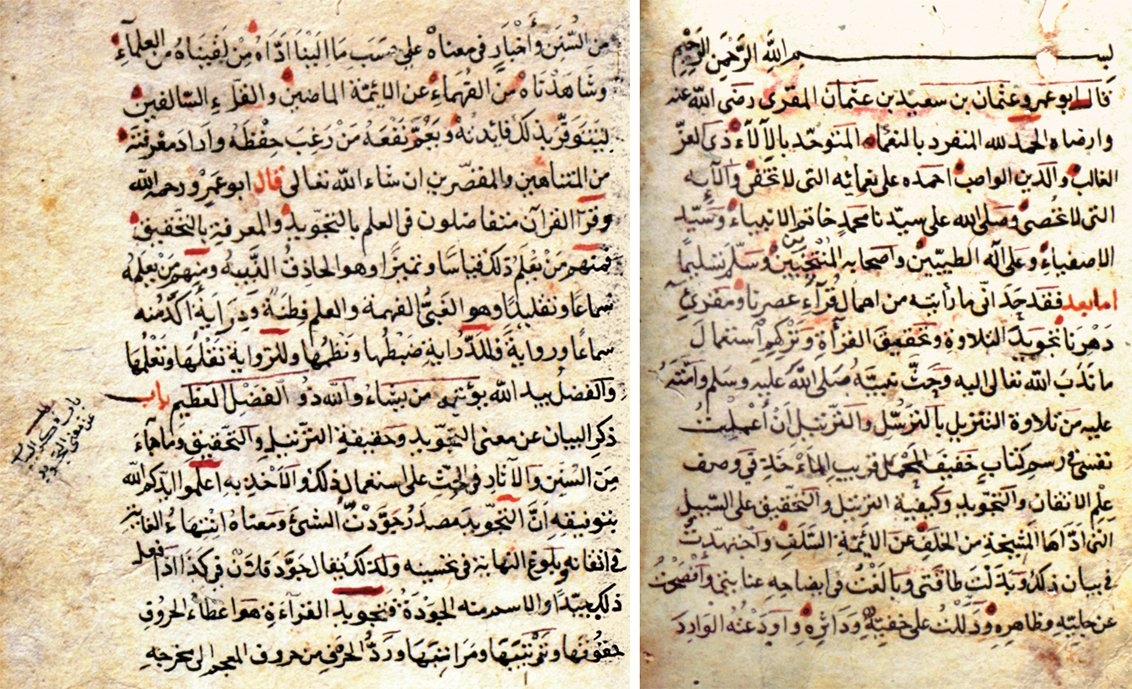 بسم الله الرحمن الرحيم
قال ابو عمرو عثمان بن سعيد بن عثمان المقرى رضى الله عنه
وارضاه الحمد لله المنفرد بالنعماء المتوحد بالآلاء ذى العز
الغالب والدين الواصب احمده على نعمائه التى لا تخفى وآلآيه
التى لا تحصى وصلى الله على سيدنا محمد خاتم الانبياء وسيد
الاصفياء وعلى آله الطيبين واصحابه المنتخبين وسلم تسليما
اما بعد فقد حدانى ما رأيته من اهمال قرآء عصرنا ومقرئى
دهرنا تجويد التلاوة وتحقيق القرأة وتركهم استعمال
ما ندب الله تعالى اليه وحث نبيه صلى الله عليه وسلم وامته
عليه من تلاوة التنزيل بالترسل والترتيل ان أعملت
نفسى فى رسم كتاب خفيف المحمل قريب المأخذ فى وصف
علم الاتقان والتجويد وكيفية الترتيل والتحقيق على السبيل
التى اداها المشيخة من الخلف عن الائمة السلف واجتهدت
فى بيان ذلك وبذلت طاقتى وبالغت فى ايضاحه عنايتى وافصحت
عن جليه وظاهره ودللت على خفيه ودائره واودعته الوارد
من السنن وأخبار فى معناه على حسب ما الينا اداه من لقيناه من العلمآء
وشاهدناه من الفهماء عن الائمة الماضين والقرآء السالفين
ليتوفر بذلك فائدته ويعم نفعه من رغب حفظه واراد معرفته
من المتناهين والمقصرين ان شاء الله تعالى قال ابو عمرو رحمه الله
وقرآ القرآن متفاضلون فى العلم بالتجويد والمعرفة بالتحقيق
فمنهم من يعلم ذلك قياسا وتميزا وهو الحاذق النبيه ومنهم من يعلمه
سماعا وتقليدا وهو الغبى الفهمه والعلم فطنة ودراية أكد منه
سماعا ورواية فللدراية ضبطها ونظمها وللرواية نقلها وتعلمها
والفضل بيد الله يؤتيه من يشاء والله ذو الفضل العظيم باب
ذكر البيان عن معنى التجويد وحقيقة الترتيل والتحقيق وما جاء
من السنن والآثار فى الحث على استعمال ذلك والاخذ به اعلموا ايدكم الله
بتوفيقه ان التجويد مصدر جودت الشئ ومعناه انتهاء الغاية
فى اتقانه وبلوغ النهاية فى تحسينه ولذلك يقال جود فلان فى كذا اذا فعل
ذلك جيدا والاسم منه الجودة فتجويد القرآءة هو اعطاء الحروف
حقوقها وترتيبها ومراتبها ورد الحرف من حروف المعجم الى مخرجه
باب ذكر البيان
عن معنى التجويد